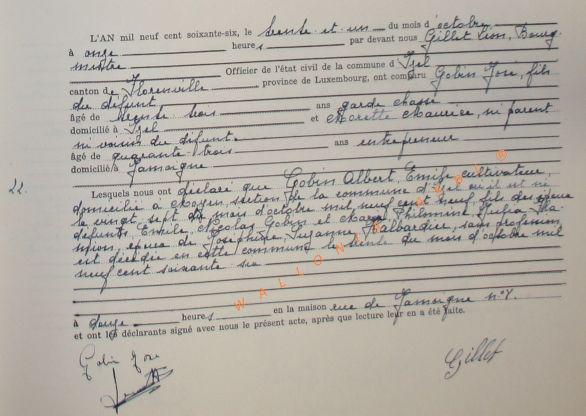 L'AN mil neuf cent soixante-six, le trente et un du mois d'octobre
à onze heures par devant nous Gillet Léon, Bourg-
mestre Officier de l'état civil de la commune d'Izel
canton de Florenville province de Luxembourg, ont comparu Gobin José, fils
du défunt,
âgé de trente trois ans garde chasse
domicilié à Izel et Maurice, ni parent
ni voisin du défunt.
âgé de quarante trois ans entrepreneur
domicilié à Jamoigne
22.
Lesquels nous ont déclaré que Gobin Albert, Emile cultivateur,
domicilié à Moyen, section de la commune d'Izel où il est né
le vingt sept du mois d'octobre mil neuf cent neuf, fils des époux
défunts, Emile, Nicolas Gobin et Philomine, Julia
époux de Joséphine, Suzanne sans profession
est décédé en cette commune le trente du mois d'octobre mil
neuf cent soixante six
à douze heures en la maison rue de Jamoigne n°
et ont les déclarants signé avec nous le présent acte, après que lecture leur en a été faite.
Gobin José
Gillet
WALLONIE